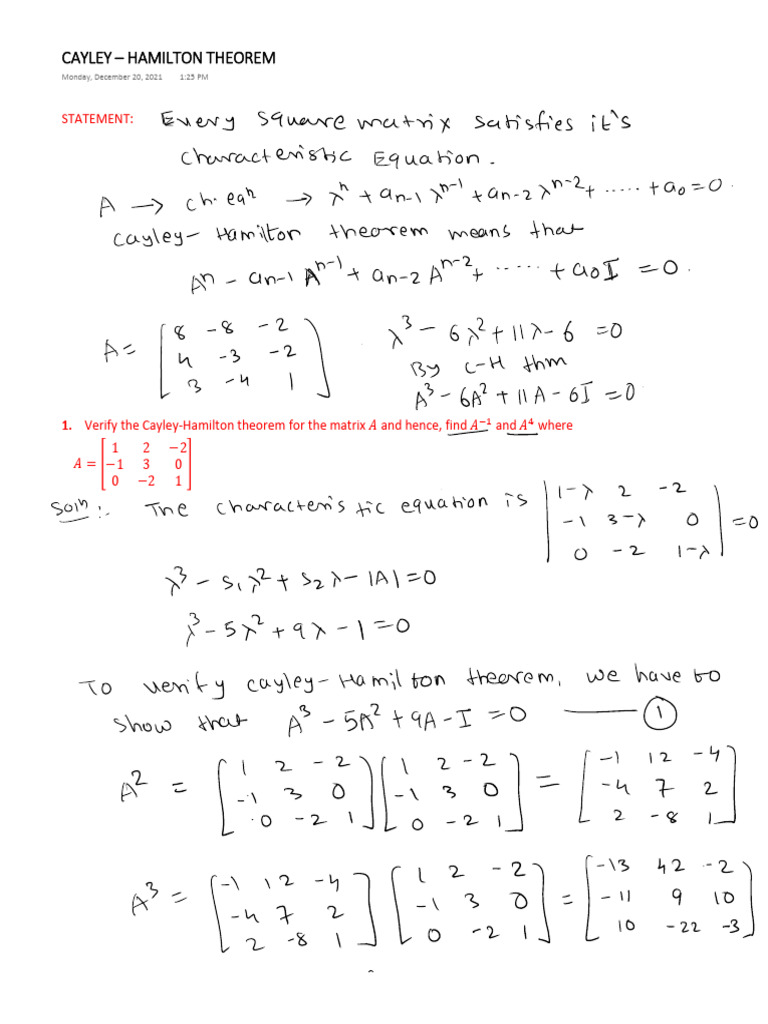 CAYLEY – HAMILTON THEOREM
Monday, December 20, 2021 1:25 PM
STATEMENT: Every square matrix satisfies it's
characteristic Equation.
A → ch. eqⁿ → λⁿ + aₙ₋₁ λⁿ⁻¹ + aₙ₋₂ λⁿ⁻² + ····· + a₀ = 0.
Cayley- Hamilton theorem means that
Aⁿ - aₙ₋₁ Aⁿ⁻¹ + aₙ₋₂ Aⁿ⁻² + ····· + a₀I = 0.
A = [8 -8 -2
4 -3 -2
3 -4 1]
λ³ - 6λ² + 11λ - 6 = 0
By C-H thm
A³ - 6A² + 11A - 6I = 0
1. Verify the Cayley-Hamilton theorem for the matrix A and hence, find A⁻¹ and A⁴ where
A = [1 2 −2
−1 3 0
0 −2 1]
Solⁿ:. The characteristic equation is |1-λ 2 -2
-1 3-λ 0
0 -2 1-λ| = 0
λ³ - S₁λ² + S₂λ - |A| = 0
λ³ - 5λ² + 9λ - 1 = 0
To verify cayley-Hamilton theorem, we have to
show that A³ - 5A² + 9A - I = 0 —— ①
A² = [1 2 -2
-1 3 0
0 -2 1] [1 2 -2
-1 3 0
0 -2 1] = [-1 12 -4
-4 7 2
2 -8 1]
A³ = [-1 12 -4
-4 7 2
2 -8 1] [1 2 -2
-1 3 0
0 -2 1] = [-13 42 -2
-11 9 10
10 -22 -3]